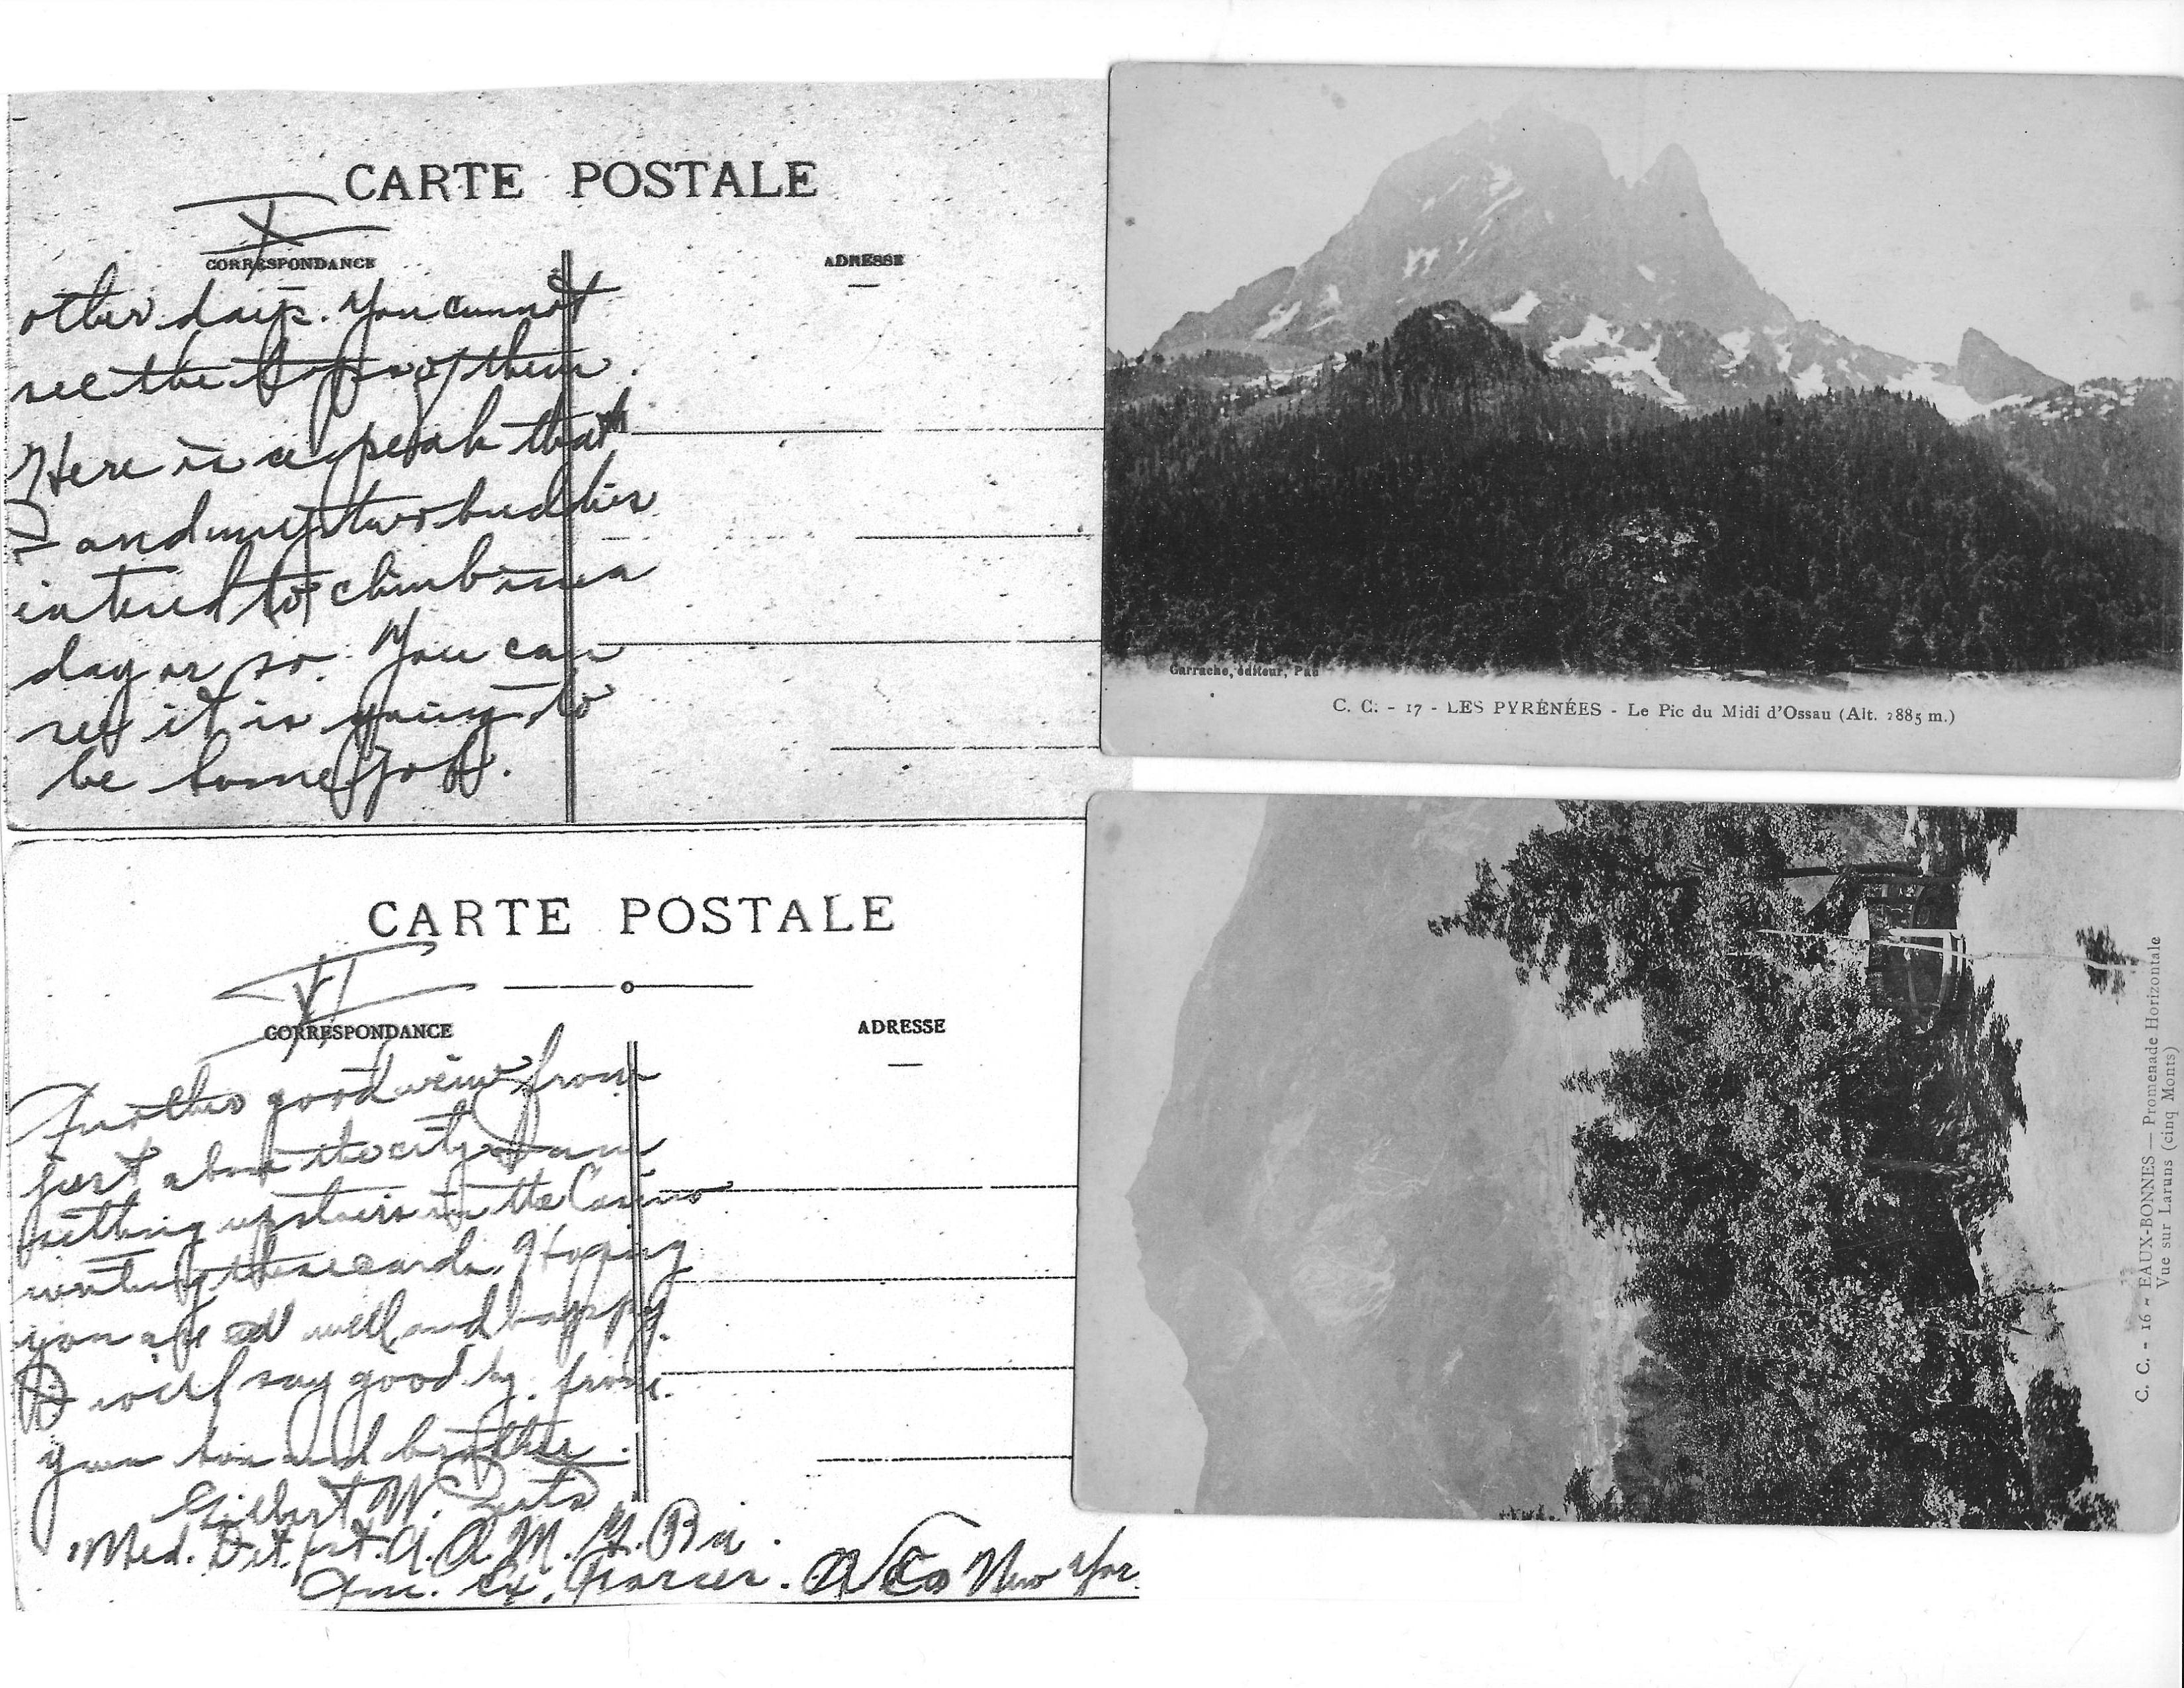 CARTE POSTALE
V
CORRESPONDANCE
ADRESSE
other days. You cannot
see the tops of them.
Here is a peak that
I and my two buddies
intend to climb in a
day or so. You can
see it is going to
be some job.
Garrache, éditeur, Pau
C. C. - 17 - LES PYRÉNÉES - Le Pic du Midi d'Ossau (Alt. 2885 m.)
CARTE POSTALE
VI
CORRESPONDANCE
ADRESSE
Another good view from
just above the city I am
setting upstairs in the Casino
writing these cards. Hoping
you are all well and happy.
I will say good by. from.
your son and brother.
Gilbert W.
Med. Det. 1st. A. A. M. G. Bn.
Am. Ex. Forces. New Yor.
C. C. - 16 - EAUX-BONNES — Promenade Horizontale
Vue sur Laruns (cinq Monts)